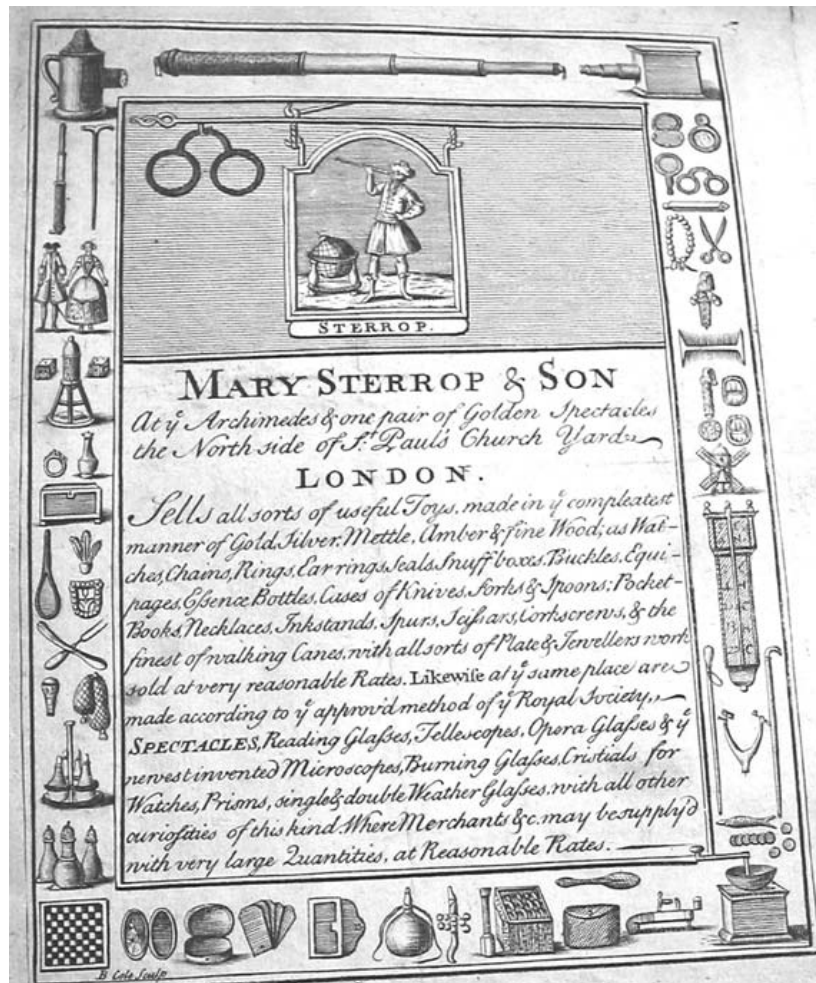 STERROP.
MARY STERROP & SON
At yͤ Archimedes & one pair of Golden Spectacles
the North side of Sͭ. Paul's Church Yard
LONDON.
Sells all sorts of useful Toys, made in yͤ compleatest
manner of Gold, Silver, Mettle, Amber & fine Wood; as Wat-
ches, Chains, Rings, Earrings, Seals, Snuff boxes, Buckles, Equi-
pages, Eſsence Bottles, Cases of Knives, Forks & Spoons; Pocket-
Books, Necklaces, Inkstands, Spurs, Sciſsars, Corkscrews, & the
finest of walking Canes, with all sorts of Plate & Jewellers work
sold at very reasonable Rates. Likewiſe at yͤ same place are
made according to yͤ approv'd method of yͤ Royal Society,
SPECTACLES, Reading Glaſses, Tellescopes, Opera Glaſses & yͤ
newest invented Microscopes, Burning Glaſses, Cristials for
Watches, Prisms, single & double Weather Glaſses, with all other
curiosities of this kind Where Merchants &c. may be supply'd
with very large Quantities, at Reasonable Rates.
B Cole Sculp